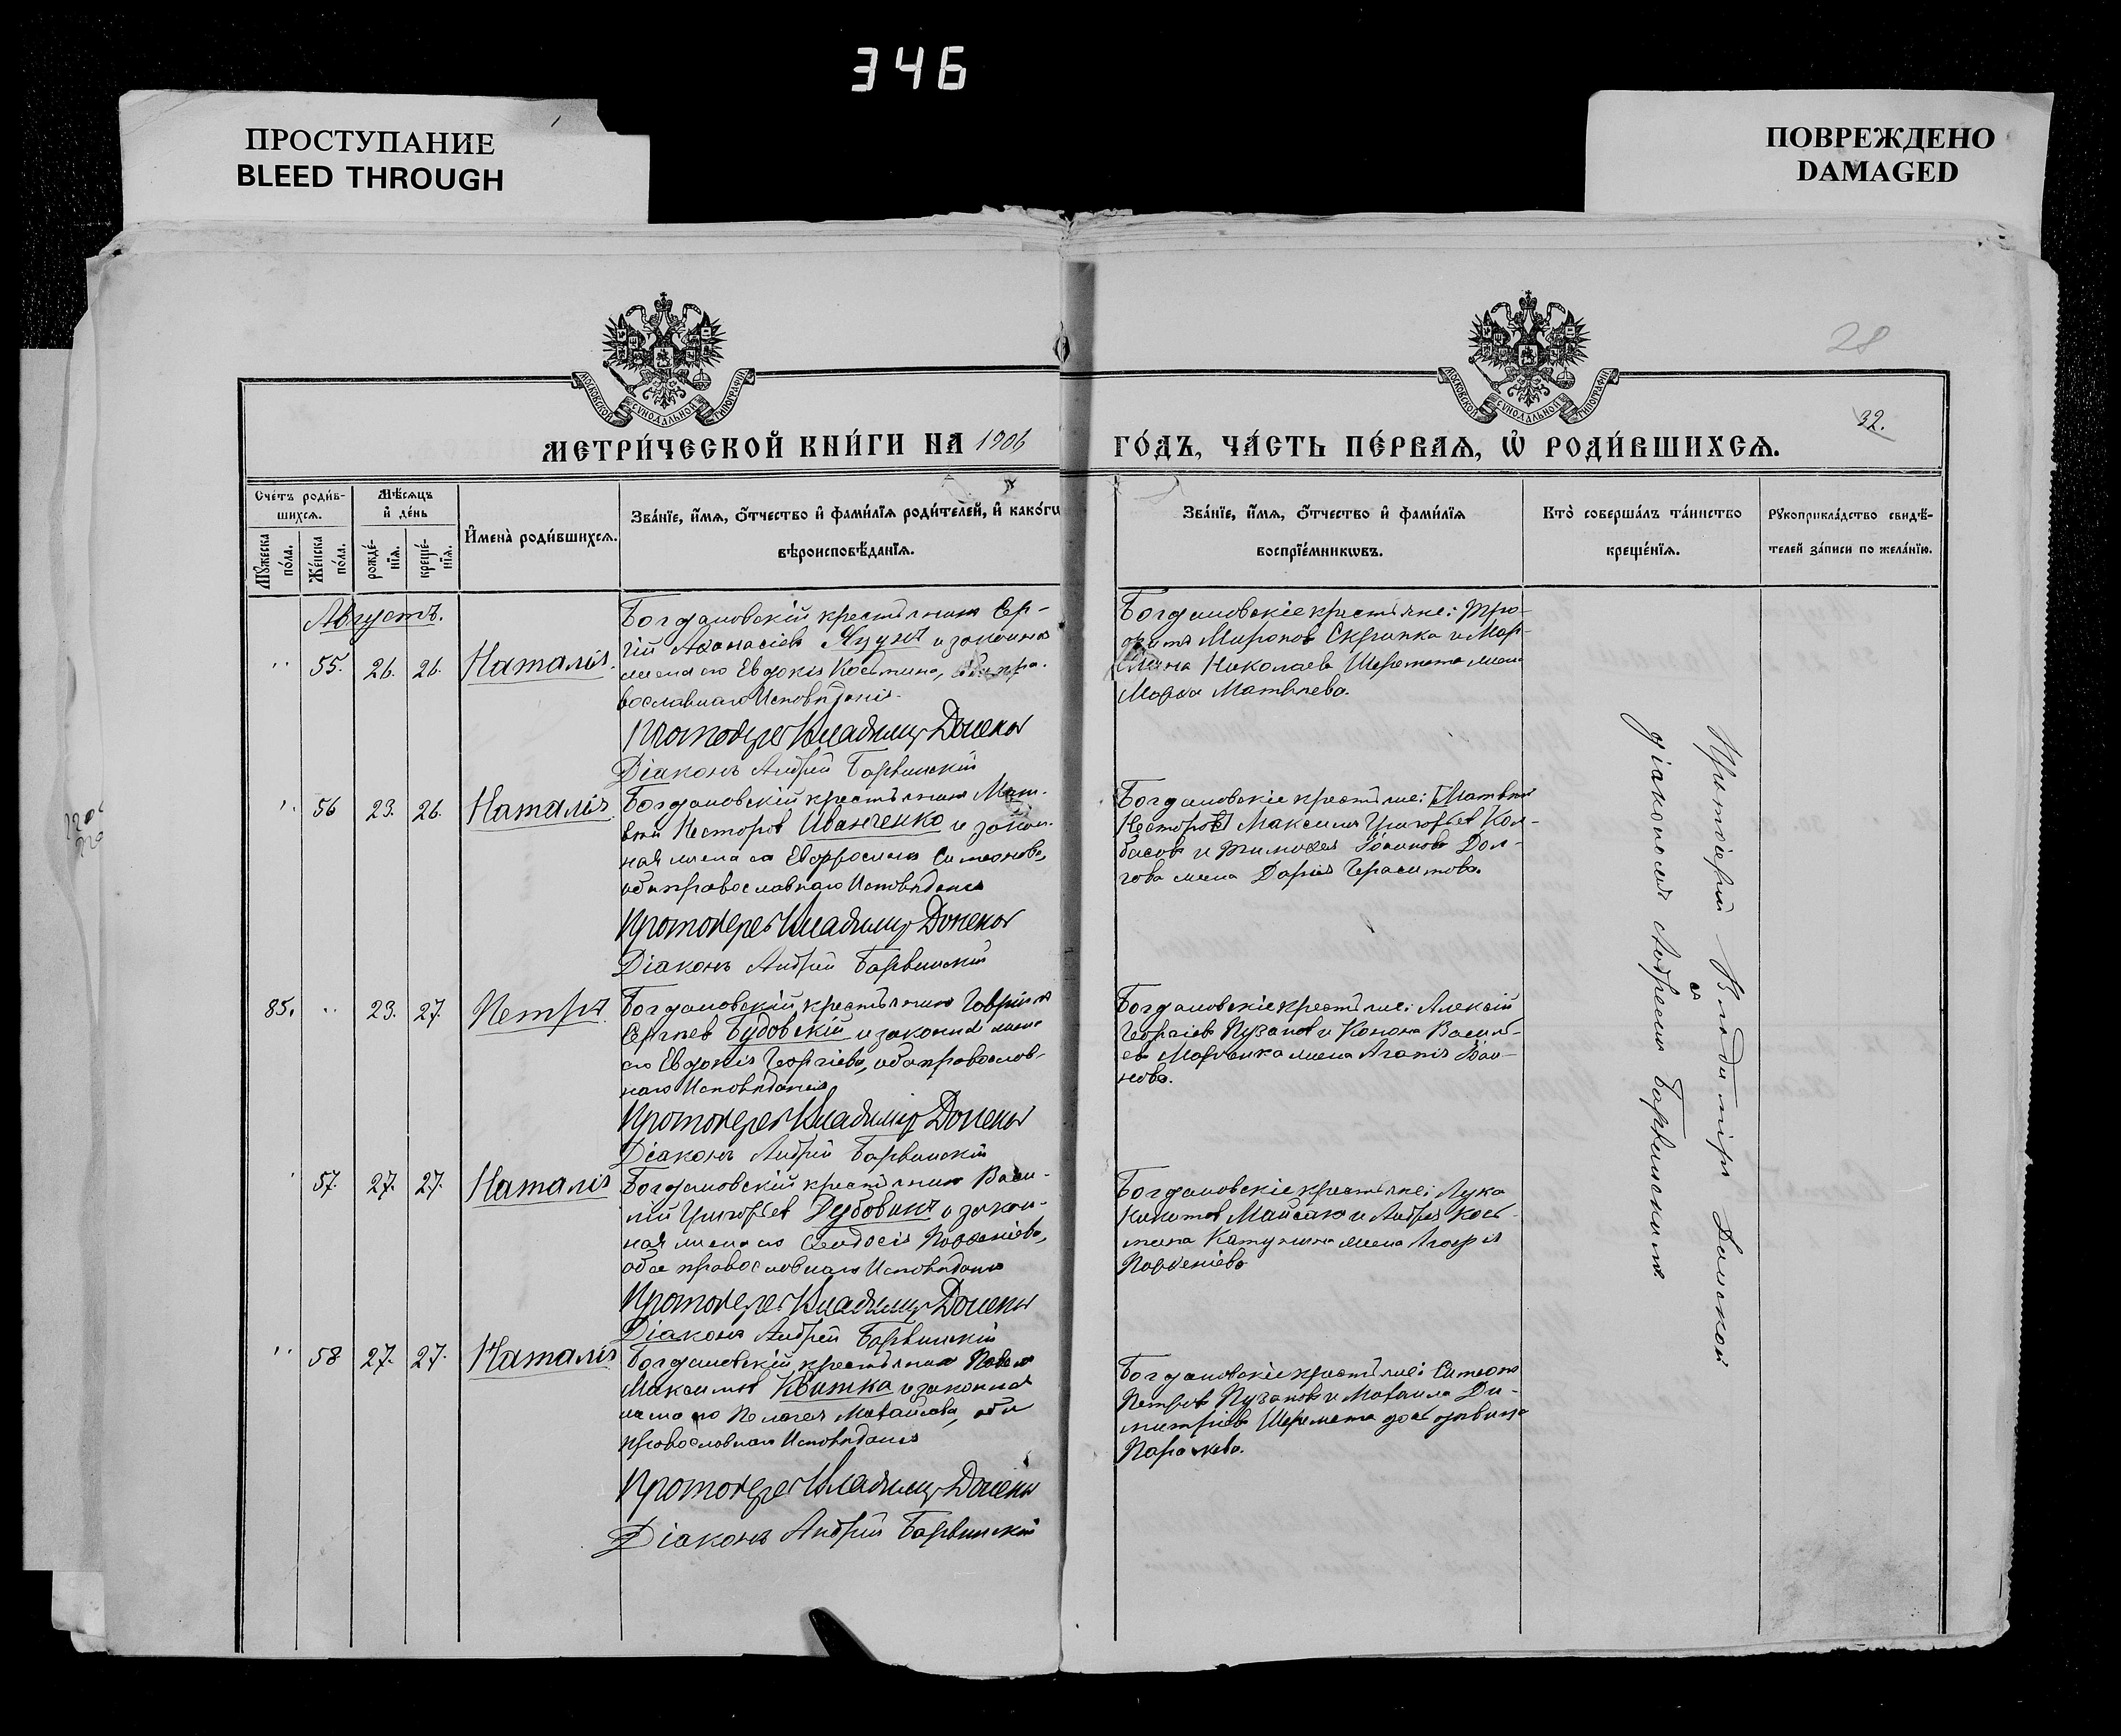 346
ПРОСТУПАНИЕ
BLEED THROUGH
ПОВРЕЖДЕНО
DAMAGED
28
32.
МОСКОВСКОЙ СѴНОДАЛЬНОЙ ТИПОГРАФІИ
МОСКОВСКОЙ СѴНОДАЛЬНОЙ ТИПОГРАФІИ
МЕТРИ́ЧЕСКОЙ КНИ́ГИ НА 1906 ГО́ДЪ, ЧА́СТЬ ПЕ́РВАѦ, Ѡ҆ РОДИ́ВШИХСѦ.
Сче́тъ роди́в-
шихсѧ.
Мꙋ́жеска по́ла.
Же́нска по́ла.
Мѣ́сѧцъ
и҆ де́нь
рожде́-
нїѧ.
креще́-
нїѧ.
И҆мена̀ роди́вшихсѧ.
Зва́нїе, и҆́мѧ, ѻ҆́тчество и҆ фами́лїѧ роди́телей, и҆ како́гѡ
вѣроисповѣ́данїѧ.
Зва́нїе, и҆́мѧ, ѻ҆́тчество и҆ фами́лїѧ
воспрїе́мникѡвъ.
Кто̀ соверша́лъ та́инство
креще́нїѧ.
Рꙋкоприкла́дство свидѣ́-
телей за́писи по жела́нїю.
Августъ.
55. 26. 26. Наталія.
Богдановскій крестьянинъ Сер-
гій Аѳанасіевъ Яцунъ и законная
жена его Евдокія Косьмина, оба пра-
вославнаго Исповѣданія.
Протоіерей Владиміръ Донской
Діаконъ Андрей Барвинскій
Богдановскіе крестьяне: Тро-
фимъ Мироновъ Скрипка и Мар-
Николаева Шеремета жена
Марѳа Матвѣева.
56 23. 26. Наталія
Богдановскій крестьянинъ Мат-
вѣй Несторовъ Иванченко и закон-
ная жена его Евфросинія Симеонова,
оба православнаго Исповѣданія
Протоіерей Владиміръ Донской
Діаконъ Андрей Барвинскій
Богдановскіе крестьяне: Матвѣй
Несторовъ Максимъ Григорьевъ Кол-
басовъ и Тимоѳея Іоаннова Дол-
гова жена Дарія Герасимова.
85. 23. 27. Петръ
Богдановскій крестьянинъ Гавріилъ
Сергѣевъ Будовскій и законная жена
его Евдокія Георгіева, оба православ-
наго Исповѣданія
Протоіерей Владиміръ Донской
Діаконъ Андрей Барвинскій
Богдановскіе крестьяне: Алексій
Георгіевъ Пузановъ и Конона Василь-
ева жена Агапія Іоан-
нова.
57. 27. 27. Наталія
Богдановскій крестьянинъ Васи-
лій Григорьевъ Дубовикъ и закон-
ная жена его Ѳеодосія Парѳеніева,
оба православнаго Исповѣданія
Протоіерей Владиміръ Донской
Діаконъ Андрей Барвинскій
Богдановскіе крестьяне: Лука
Никитовъ Майсакъ и Андрея Кось-
мина жена
Парѳеніева
58 27. 27. Наталія
Богдановскій крестьянинъ Павелъ
Максимовъ Квитка и законная
жена его Пелагея Михайлова, оба
православнаго Исповѣданія
Протоіерей Владиміръ Донской
Діаконъ Андрей Барвинскій
Богдановскіе крестьяне: Симеонъ
Петровъ Пузановъ и Михаила Ди-
митріева Шеремета дочь дѣвица
Параскева.
Протоіерей Владиміръ Донской
съ
діакономъ Андреемъ Барвинскимъ.